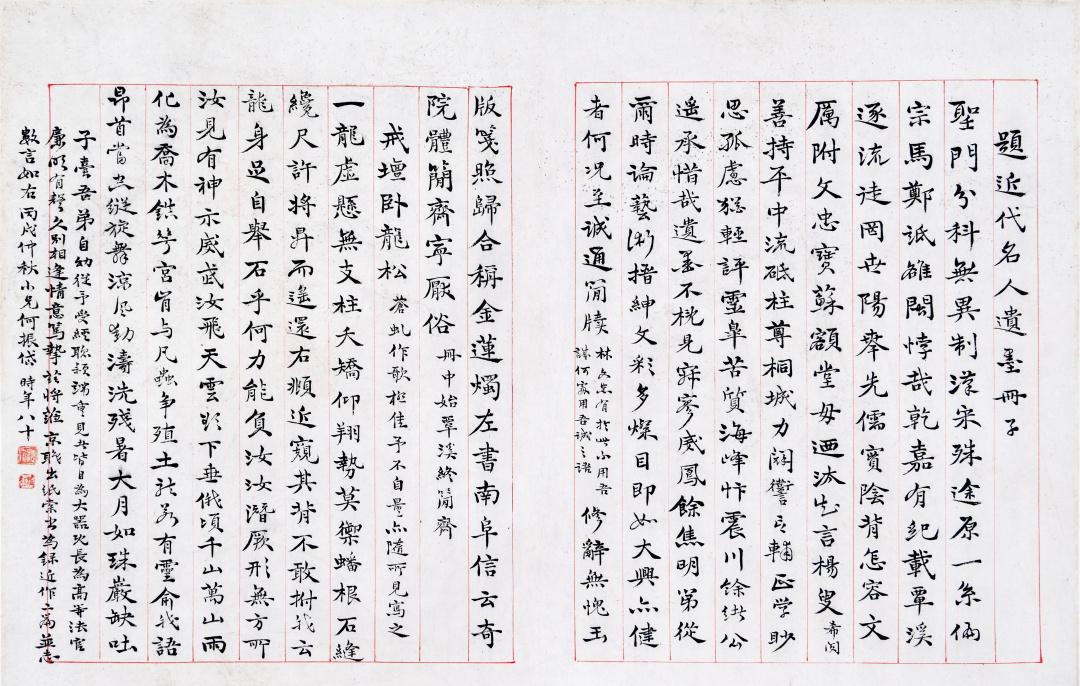 題近代名人遺墨冊子
聖門分科無異制漢宋殊途原一系倆
宗馬鄭詆雒閩悖哉乾嘉有紀載覃溪
逐流徒罔世陽奉先儒實陰背怎容文
厲附文忠寶蘇額堂毋迺汰知言楊叟希閔
善持平中流砥柱尊桐城力闢言輔正学眇
思孤慮猶輕評靈皋苦質海峰忭震川餘緒公
遙承惜哉遺墨不桄見寂寥威鳳餘焦明第從
爾時論藝術搢紳文彩多燦目即如大興亦健
者何況至誠通簡牘修辭無愧玉
版箋照歸合稱金蓮燭左書南阜信云奇
院體簡齋寧厭俗冊中始覃溪終簡齋
戒壇卧龍松蒼虬作歌極佳予不自量亦隨所見寫之
一龍虛懸無支柱夭矯仰翔勢莫禦蟠根石縫
纔尺許將昇而遙還右瀕近窺其背不敢拊我云
龍身足自舉石乎何力能負汝汝潛厥形無方所
汝見有神示威武汝飛天雲影下垂俄頃千山萬山雨
化為喬木鎮梵宮肯与尺蟲争殖土於若有靈俞我語
昂首當空縱旋舞涼風動濤洗殘暑大月如珠巖缺吐
子臺吾弟自幼從予受經聰穎端重見者皆目為大器比長為高等法官
廉明有聲久別相逢情意篤摯於將離京職出紙索書為録近作二篇並志
數言如右丙戌仲秋小兄何振岱時年八十